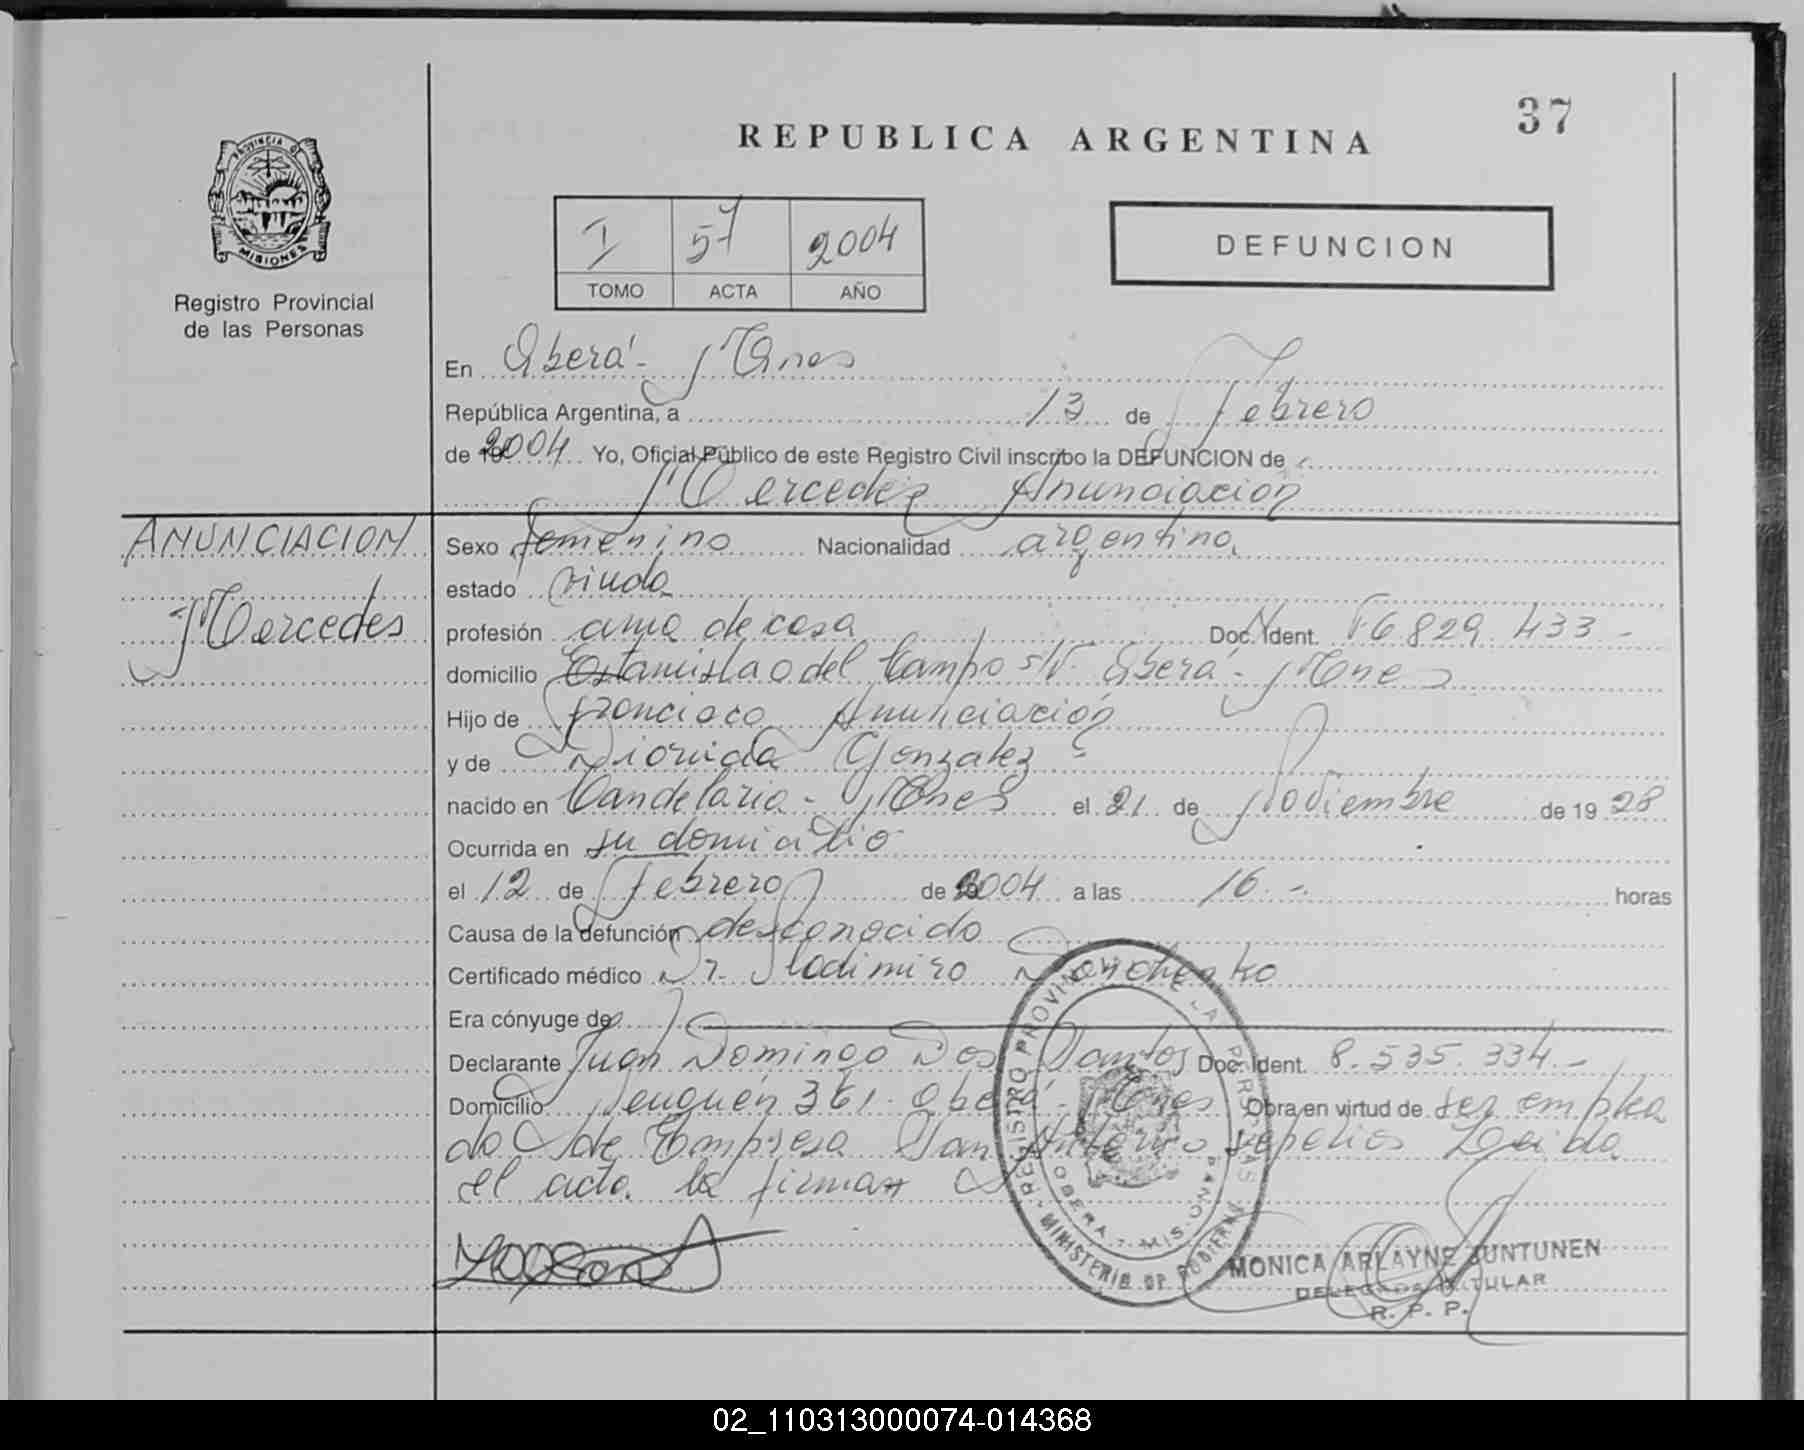 37
REPUBLICA ARGENTINA
PROVINCIA DE
MISIONES
Registro Provincial
de las Personas
I 57 2004
TOMO ACTA AÑO
DEFUNCION
En Oberá - Mnes
República Argentina, a 13 de Febrero
de 2004 Yo, Oficial Público de este Registro Civil inscribo la DEFUNCION de
Mercedes Anunciación
ANUNCIACION
Mercedes
Sexo femenino Nacionalidad argentina
estado viuda
profesión ama de casa Doc. Ident. F6 829 433 -
domicilio Estanislao del Campo s/N. Oberá - Mnes
Hijo de Francisco Anunciación
y de Gonzalez
nacido en Candelaria - Mnes el 21 de Noviembre de 19 28
Ocurrida en su domicilio
el 12 de Febrero de 2004 a las 16 - horas
Causa de la defunción desconocido
Certificado médico Dr. Vlodimiro
Era cónyuge de
Declarante Juan Domingo Dos Santos Doc. Ident. 8.535.334.-
Domicilio Neuquén 361 - Oberá - Mnes Obra en virtud de ser emplea
do de Empresa San Antonio sepelios Leida
el acta la firman
REGISTRO PROVINCIAL DE LAS PERSONAS
MINISTERIO DE GOBIERNO
OBERA - MIS.
MONICA ARLAYNE JUNTUNEN
DELEGADA TITULAR
R. P. P.
02_110313000074-014368